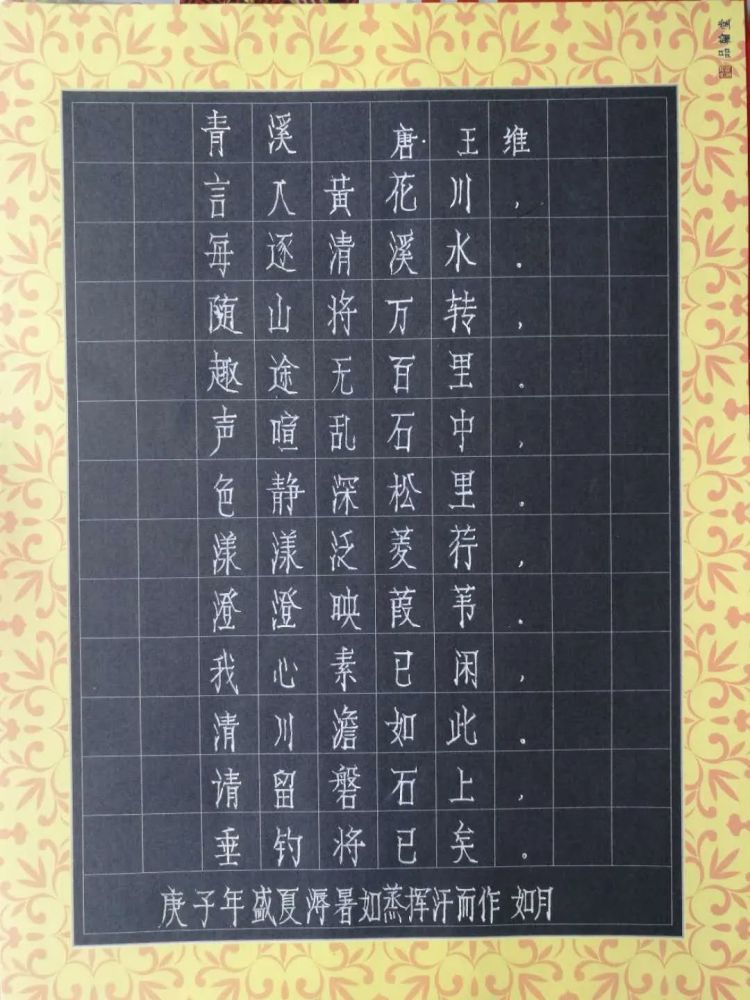 青溪 唐·王维
言入黄花川，
每逐清溪水。
随山将万转，
趣途无百里。
声喧乱石中，
色静深松里。
漾漾泛菱荇，
澄澄映葭苇。
我心素已闲，
清川澹如此。
请留磐石上，
垂钓将已矣。
庚子年盛夏溽暑如蒸挥汗而作 如月